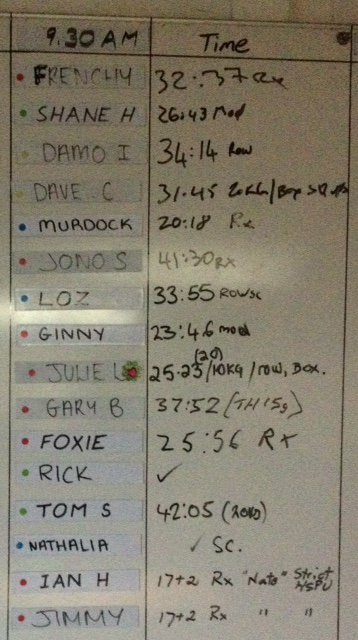 9.30 AM Time
FRENCHY 32:37 Rx
SHANE H 26:43 Mod
DAMO I 34:14 Row
DAVE C 31:45 20KG/Box
MURDOCK 20:18 Rx
JONO S 41:30 RX
LOZ 33:55 ROWSC
GINNY 23:46 mod
JULIE L 25:25 (20)/10KG/row, BOX.
GARY B 37:52 (TH 15g)
FOXIE 25:56 RX
RICK ✓
TOM S 42:05
NATHALIA ✓ SC.
IAN H 17+2 Rx "Nate" Strict HSPU
JIMMY 17+2 Rx " "